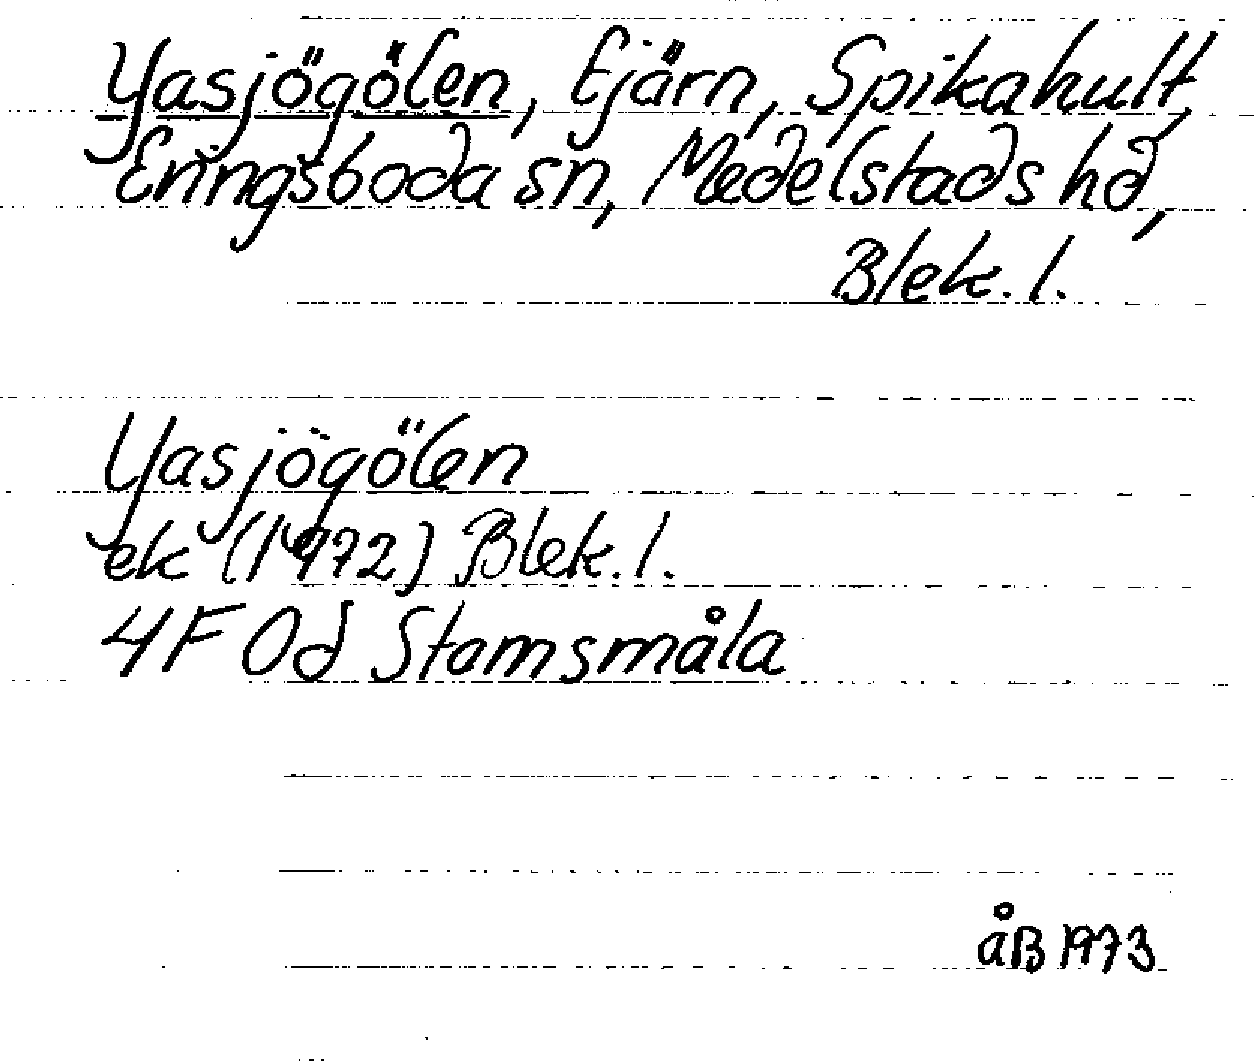 Yasjögölen, tjärn, Spikahult,
Eringsboda sn, Medelstads hd,
Blek. l.
Yasjögölen
ek (1972) Blek. l.
4F 0d Stamsmåla
åB 1973